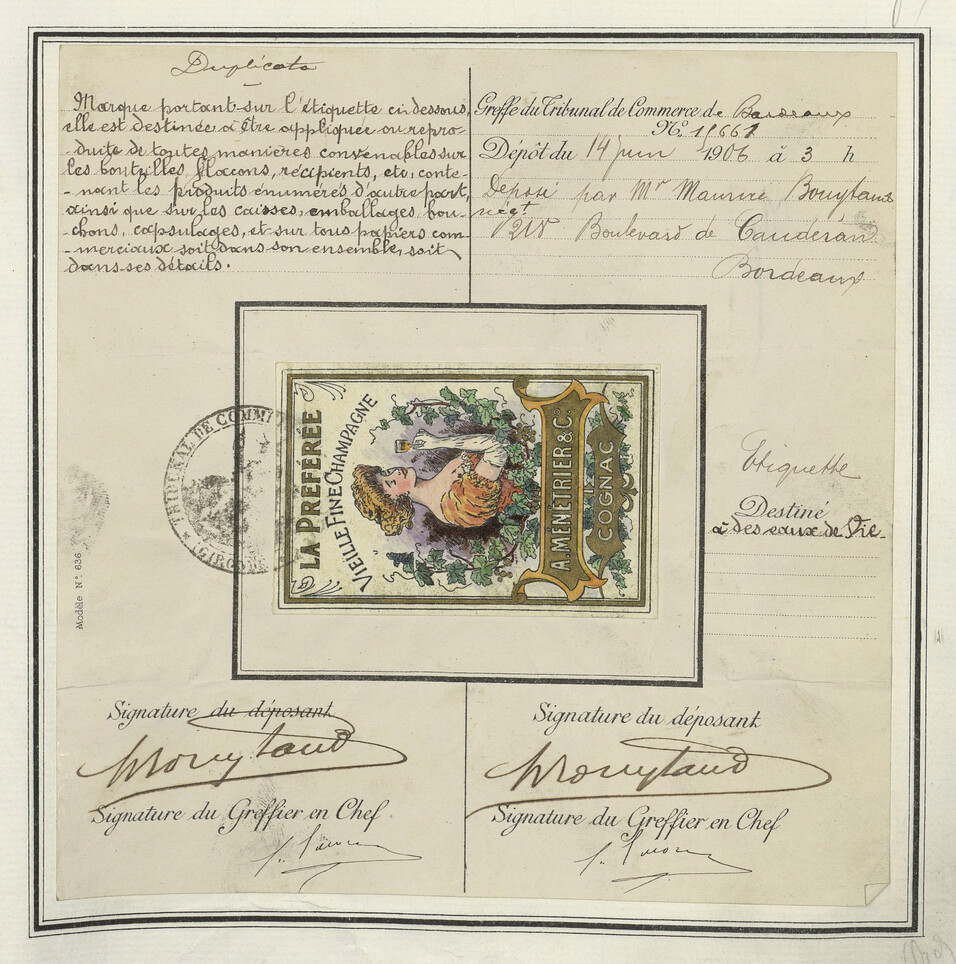 Duplicata
Marque portant sur l'étiquette ci dessous,
elle est destinée à être appliquée ou repro-
duite de toutes manières convenables sur
les bouteilles, flacons, récipients, etc, conte-
-nant les produits énumérés d'autre part,
ainsi que sur les caisses, emballages, bou-
-chons, capsulages, et sur tous papiers com-
-merciaux soit dans son ensemble, soit
dans ses détails.
Greffe du Tribunal de Commerce de Bordeaux
N°
Dépôt du 14 juin 1906 à 3 h
Déposé par Mr Maurice Bouytaud
négt
218 Boulevard de Caudéran
Bordeaux
TRIBUNAL DE COMM
(GIRONDE
LA PRÉFÉRÉE
VIEILLE FINE CHAMPAGNE
A. MÉNÉTRIER & Co.
COGNAC
Etiquette
Destiné
à des eaux de Vie-
Modèle N° 636
Signature du déposant
MBouytaud
Signature du Greffier en Chef
Signature du déposant
MBouytaud
Signature du Greffier en Chef